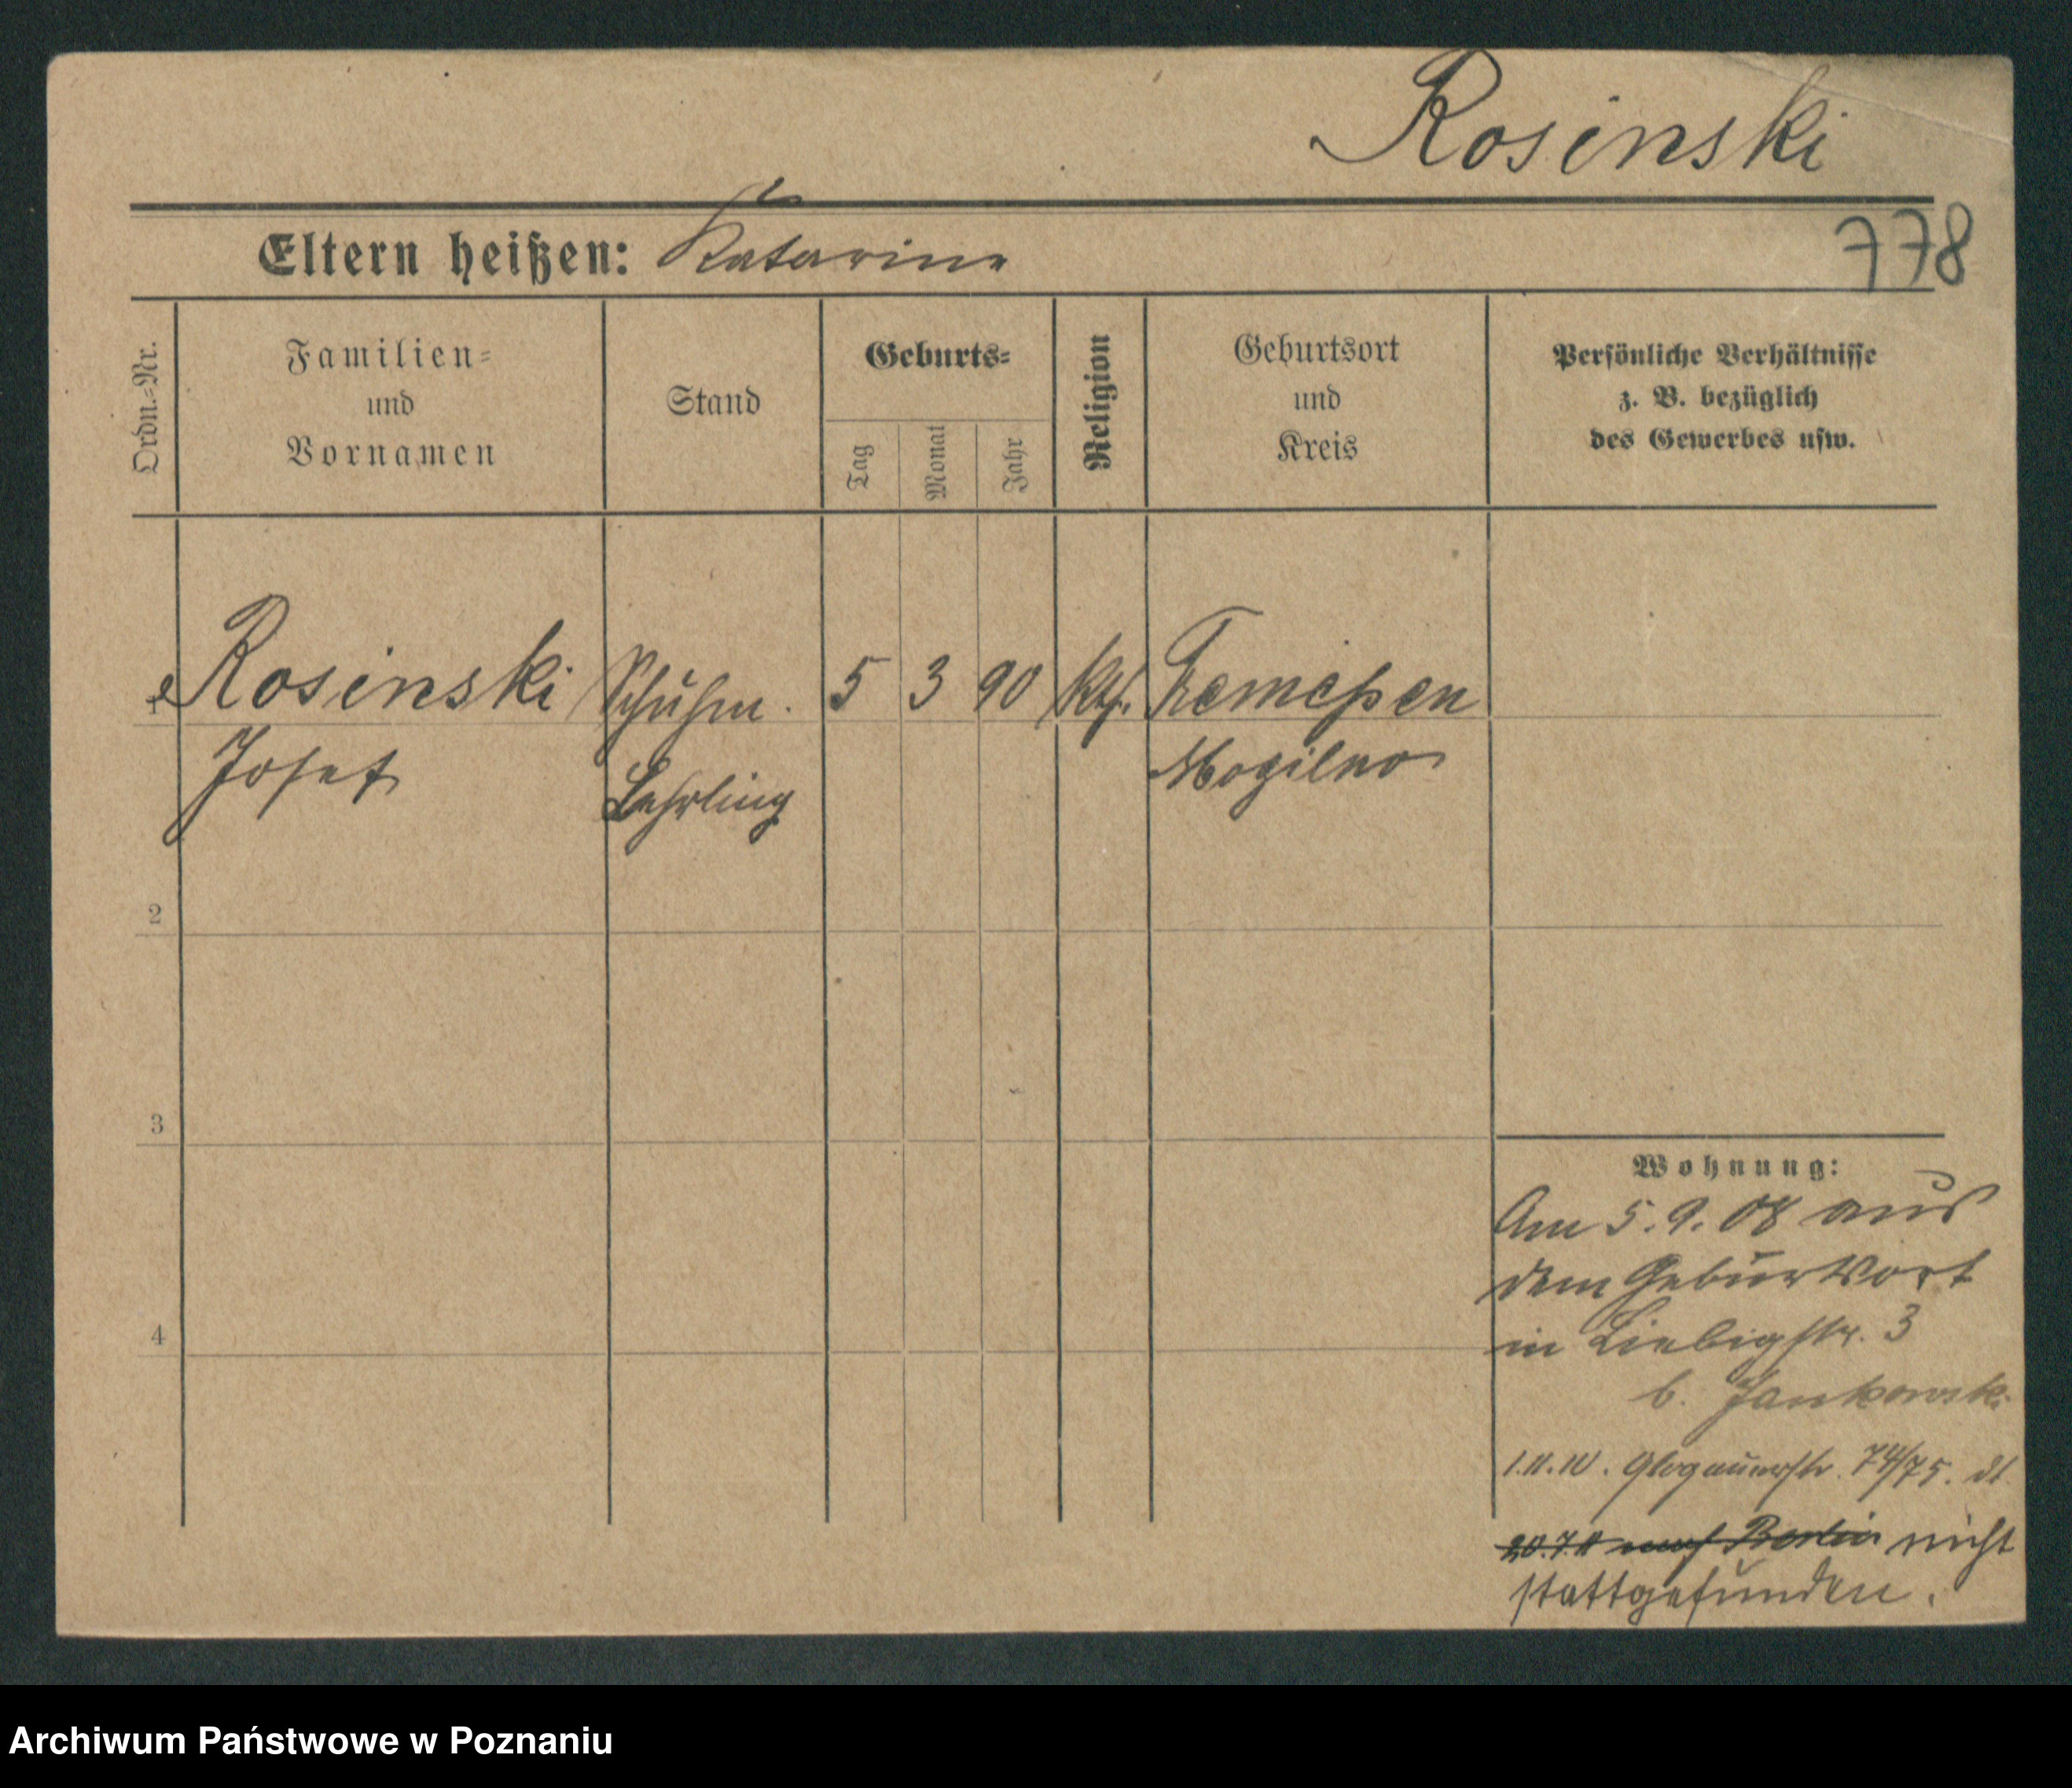 Rosinski
Eltern heißen: Katarina
778
Ordn.-Nr.
Familien-
und
Vornamen
Stand
Geburts-
Tag
Monat
Jahr
Religion
Geburtsort
und
Kreis
Persönliche Verhältnisse
z. B. bezüglich
des Gewerbes usw.
1 Rosinski Schuhm. 5 3 90 kth. Tremeßen
Josef Lehrling Mogilno
2
3
4
Wohnung:
Am 5.9.08 aus
dem Geburtsort
in Liebigstr. 3
b. Jankowski
1.11.10. Glogauerstr. 74/75.
20.7.11 nach Berlin nicht
stattgefunden.
Archiwum Państwowe w Poznaniu